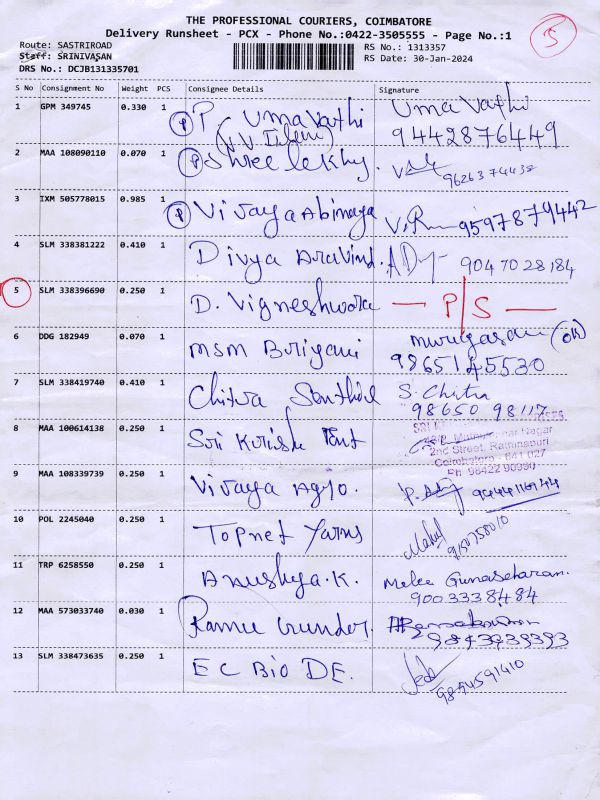 THE PROFESSIONAL COURIERS, COIMBATORE
Delivery Runsheet - PCX - Phone No.:0422-3505555 - Page No.:1
5
Route: SASTRIROAD
Staff: SRINIVASAN
DRS No.: DCJB131335701
RS No.: 1313357
RS Date: 30-Jan-2024
S No Consignment No Weight PCS Consignee Details Signature
1 GPM 349745 0.330 1 P P. Uma Vathi Uma Vathi
9442876449
2 MAA 108090110 0.070 1 P Shree lekhy. 9626374432
3 IXM 505778015 0.985 1 P Vijaya Abinaya 9597879442
4 SLM 338381222 0.410 1 Divya Aravind. 9047028184
5 SLM 338396690 0.250 1 D. Vigneshwora P/S
6 DDG 182949 0.070 1 MSM Biriyani murugasan
9865145530
7 SLM 338419740 0.410 1 Chitra Senthil S. Chitra
98650 98117
8 MAA 100614138 0.250 1 Sri Krish Tent
2nd Street, Rathinapuri
Coimbatore - 641 027
Ph: 98422 90990
9 MAA 108339739 0.250 1 Vijaya Agro.
10 POL 2245040 0.250 1 Topnet Yarns
9150758010
11 TRP 6258550 0.250 1 Anushya.K. Melee Gunasekaran.
9003338484
12 MAA 573033740 0.030 1 Ramu
9843939393
13 SLM 338473635 0.250 1 EC BIO DE.
9894591410